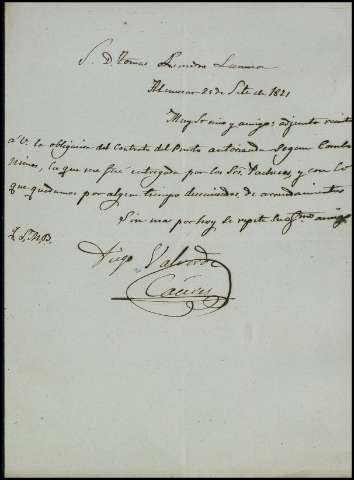 S. D. Tomas
Almanzar 25 de Sete. de 1821
Muy Sr. mio y amigo: adjunto remito
á V. la obligacion del Contrato del Punto autorizada segun Combe
nimos, la que me fué entregada por los Sres. Pacheco, y con lo
que quedamos por algun tiempo descuidados de arrendamientos
Sin mas por hoy se repite su amigo
Q. S. M. B.
Diego Valverde
Cáceres